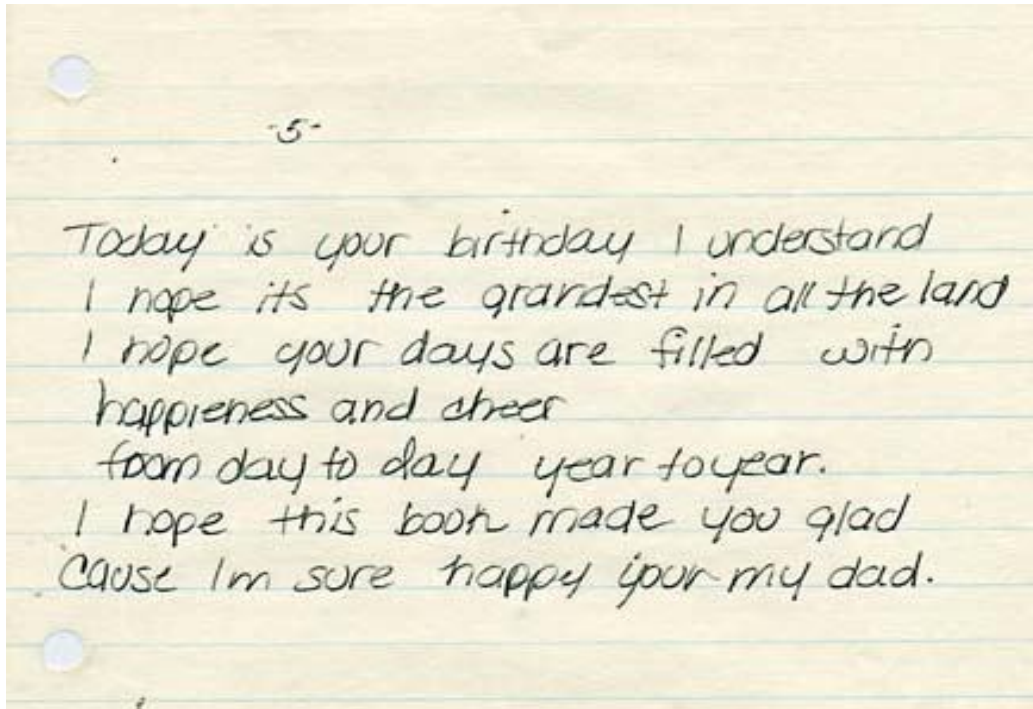 -5-
Today is your birthday I understand
I hope its the grandest in all the land
I hope your days are filled with
happieness and cheer
from day to day year to year.
I hope this book made you glad
Cause Im sure happy your my dad.